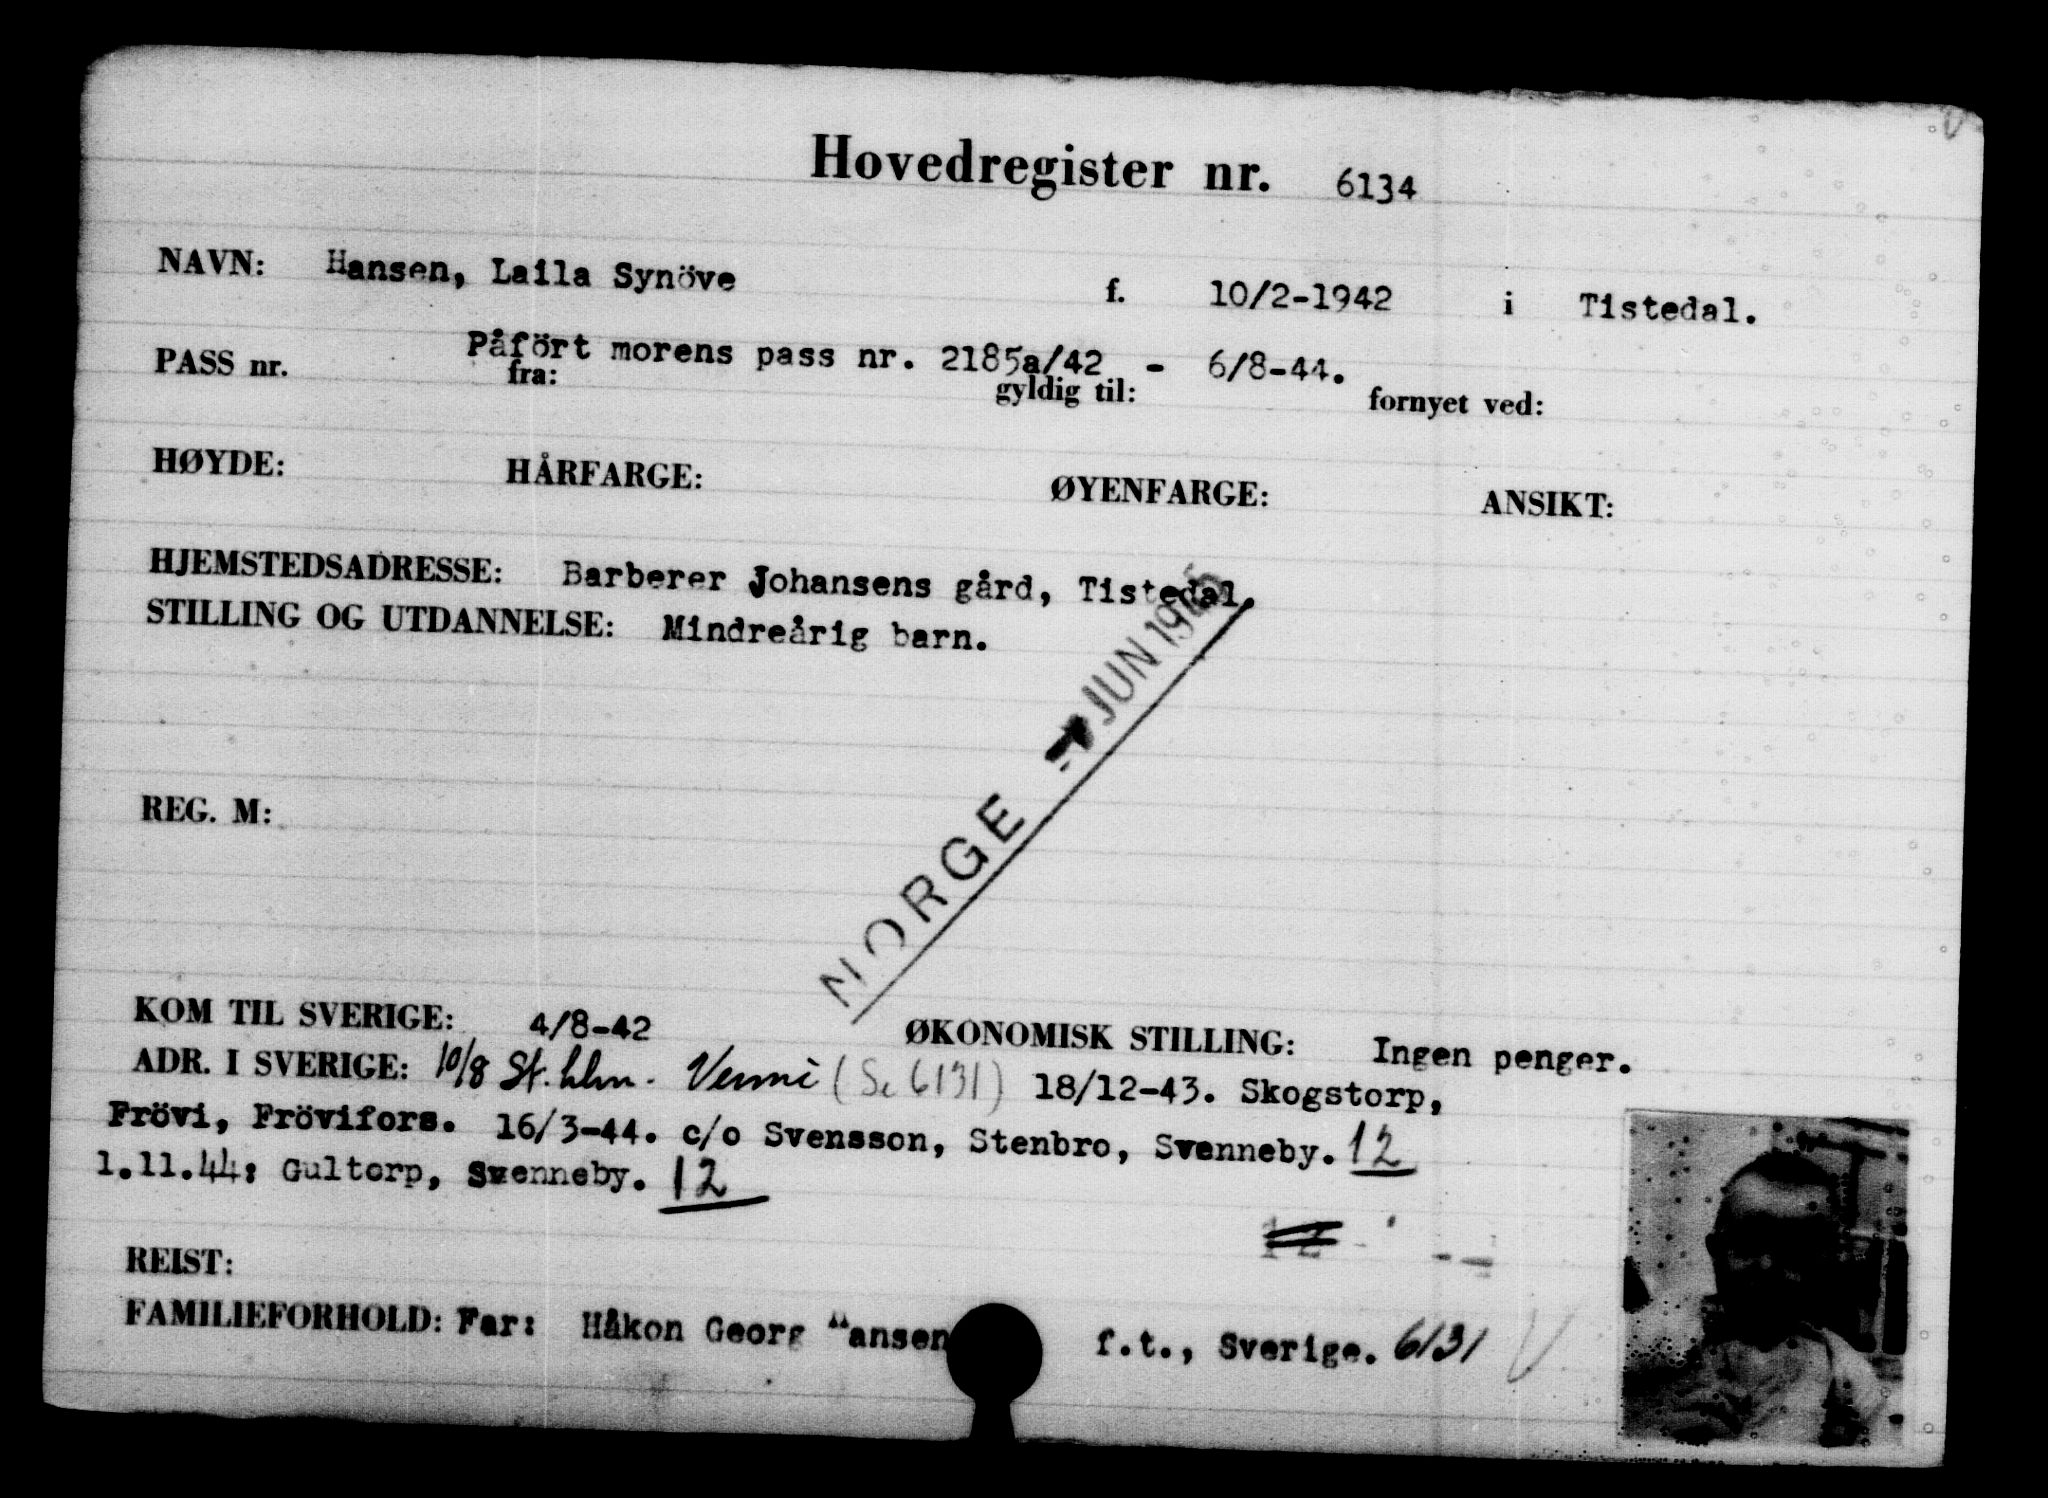 Hovedregister nr. 6134
NAVN: Hansen, Laila Synöve f. 10/2-1942 i Tistedal.
Påfört morens pass nr. 2185a/42 - 6/8-44.
PASS nr. fra: gyldig til: fornyet ved:
HØYDE: HÅRFARGE: ØYENFARGE: ANSIKT:
HJEMSTEDSADRESSE: Barberer Johansens gård, Tistedal.
STILLING OG UTDANNELSE: Mindreårig barn.
NORGE JUN 1945
REG. M:
KOM TIL SVERIGE: 4/8-42 ØKONOMISK STILLING: Ingen penger.
ADR. I SVERIGE: 10/8 (Se 6131) 18/12-43. Skogstorp,
Frövi, Frövifors. 16/3-44. c/o Svensson, Stenbro, Svenneby. 12
1.11.44: Gultorp, Svenneby. 12
12
REIST:
FAMILIEFORHOLD: Far: Håkon Georg Hansen f.t., Sverige. 6131 V